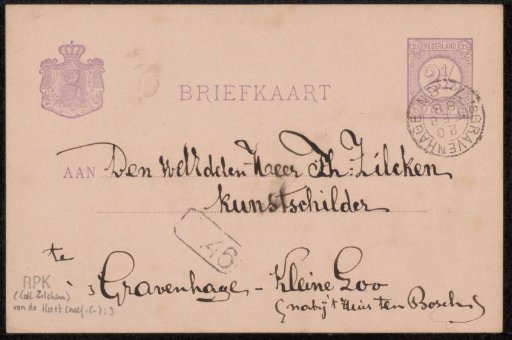 NEDERLAND
2½
BRIEFKAART
'S GRAVENHAGE
20
AAN Den WelEdelen Heer Ph: Zilcken
Kunstschilder
46
te
's Gravenhage - Kleine Loo
(nabij 't Huis ten Bosch)
RPK
(Coll. Zilcken)
van de Horst (mej. C.): 3